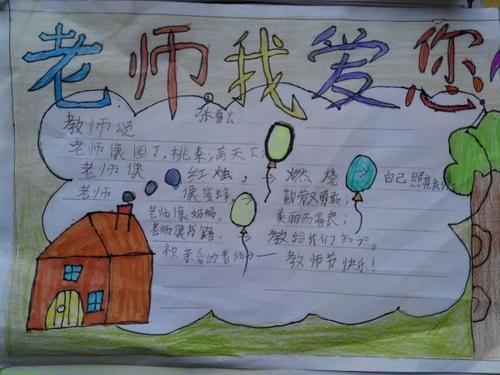 老师我爱您
教师颂
老师像园丁,桃李满天下,
老师像红烛,燃烧自己照亮我们。
老师像蜜蜂,勤劳勇敢;
老师像妈妈,美丽而善良;
老师像书籍,教给我们知识。
祝亲爱的老师——教师节快乐!